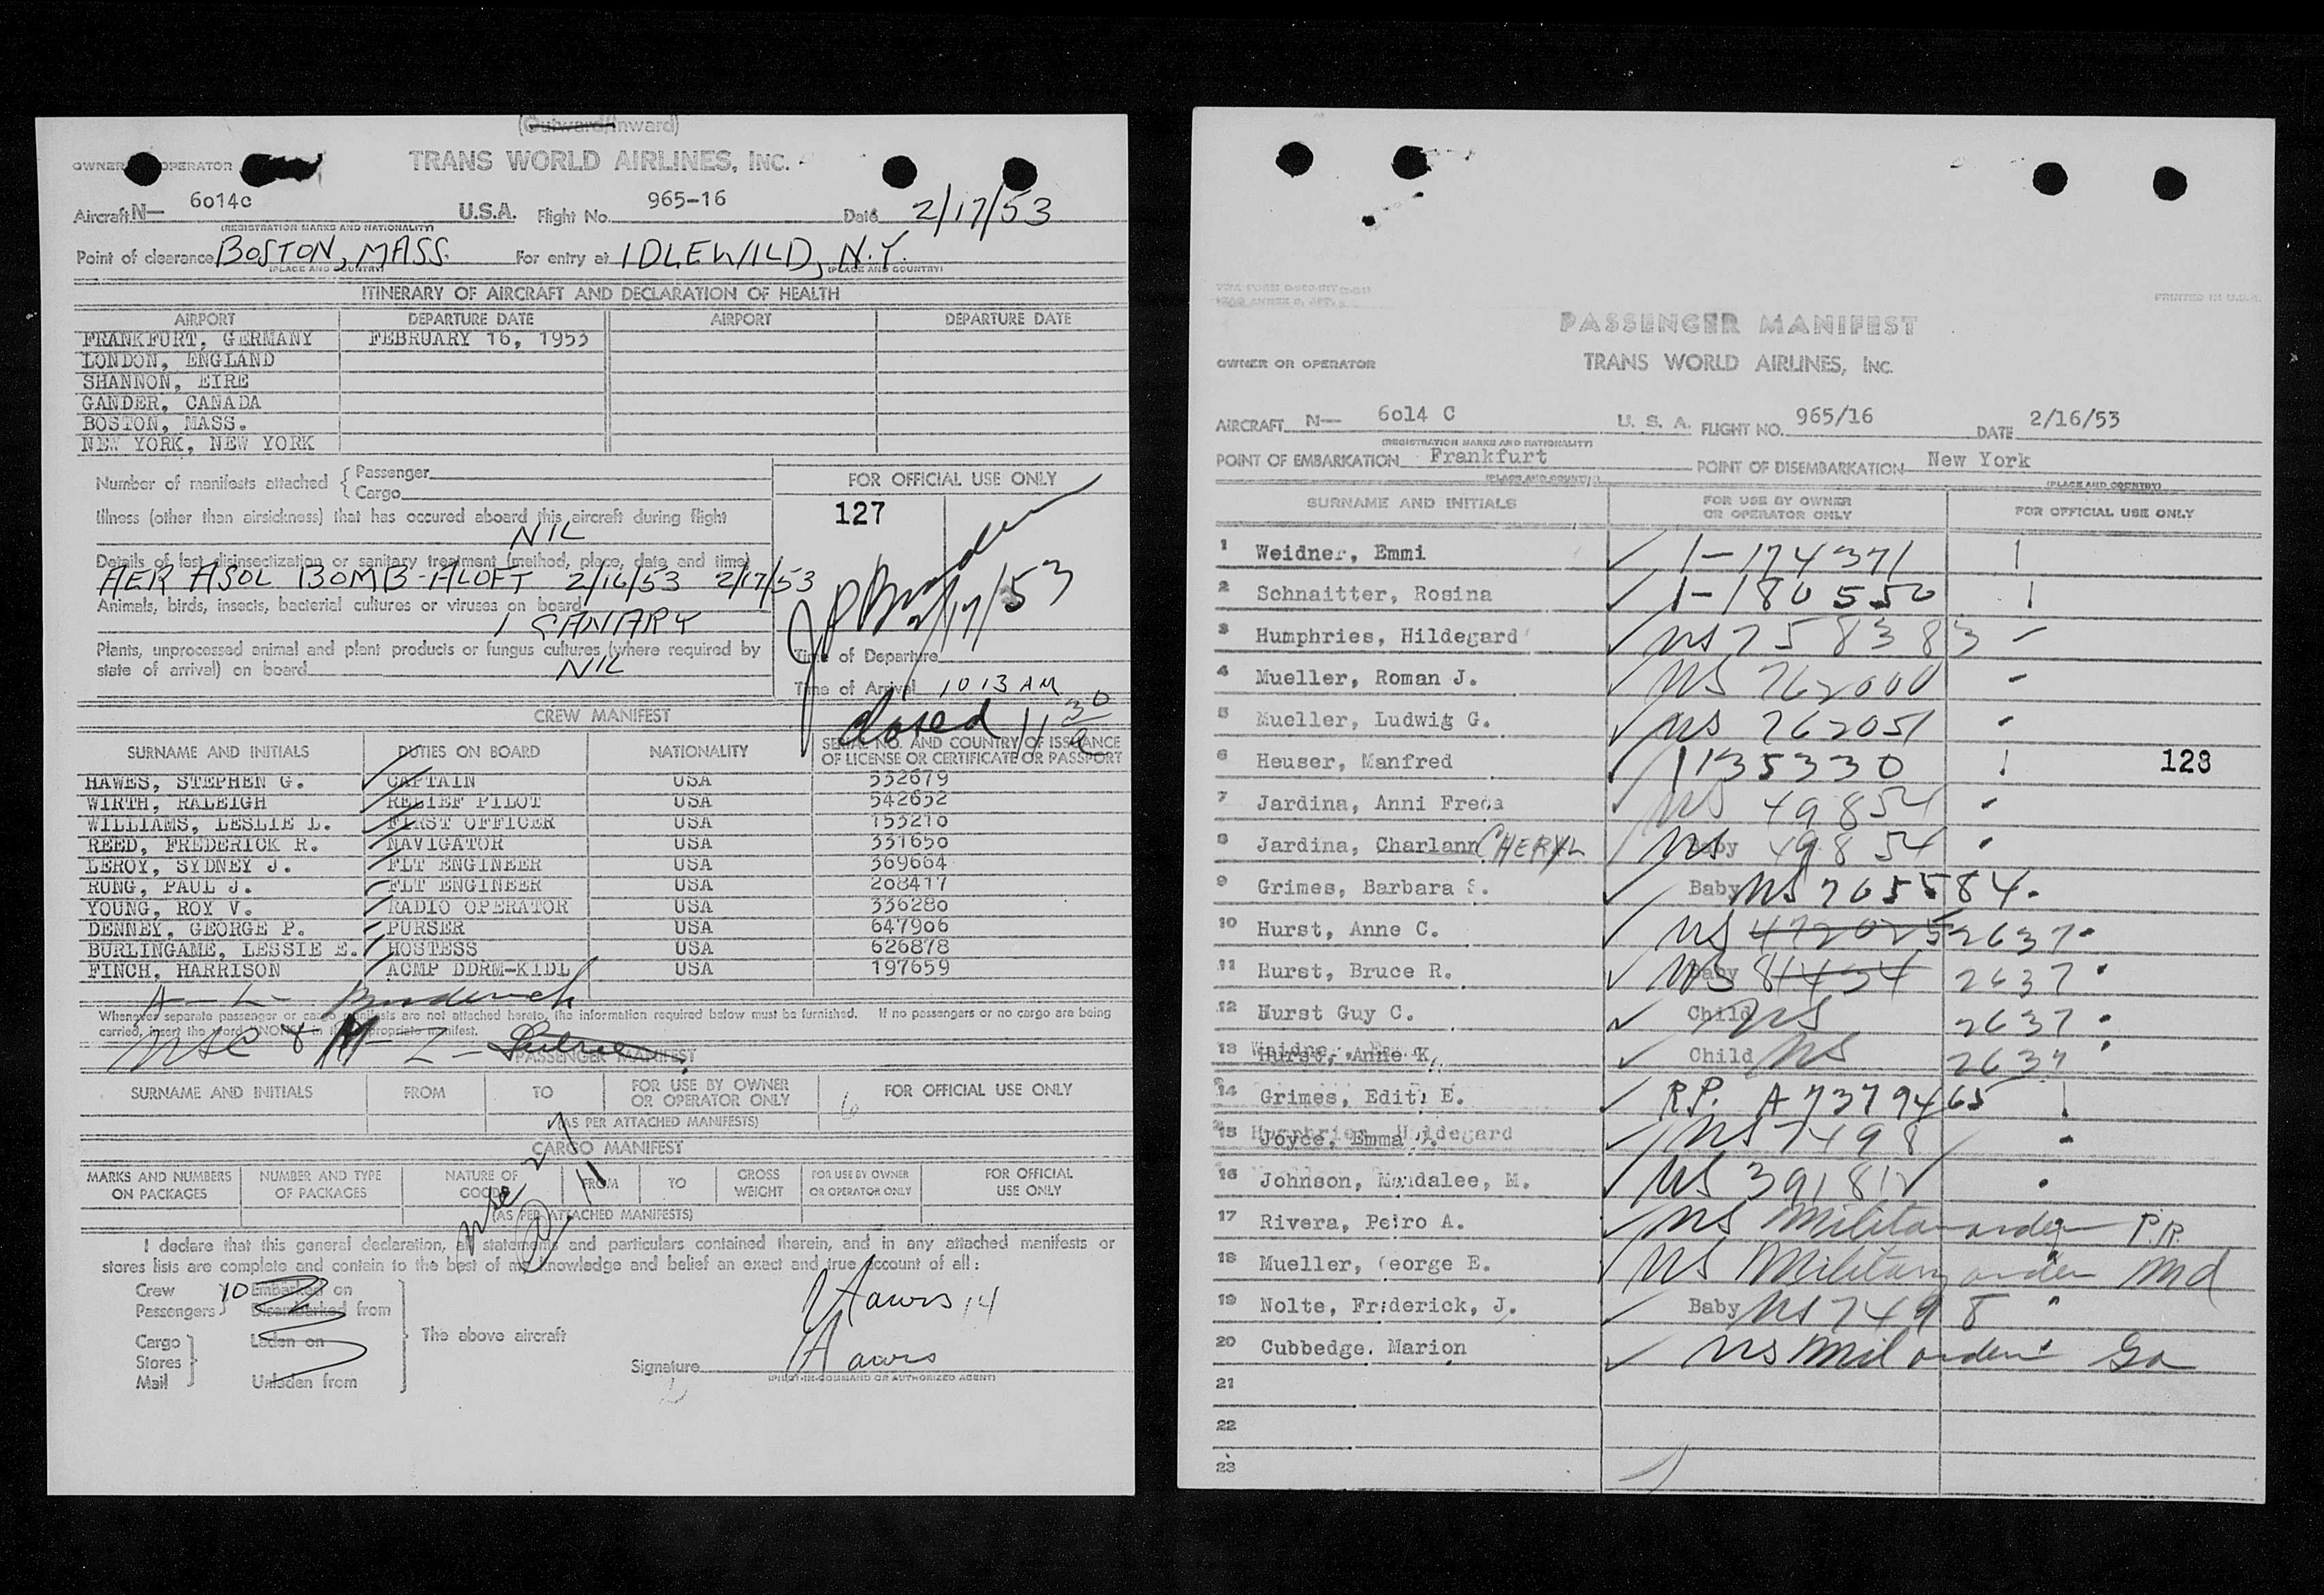 (Outward/Inward)
OWNER OPERATOR TRANS WORLD AIRLINES, INC.
Aircraft N— 6o14c U.S.A. Flight No. 965-16 Date 2/17/53
(REGISTRATION MARKS AND NATIONALITY)
Point of clearance BOSTON, MASS. For entry at IDLEWILD, N.Y.
(PLACE AND COUNTRY) (PLACE AND COUNTRY)
ITINERARY OF AIRCRAFT AND DECLARATION OF HEALTH
AIRPORT DEPARTURE DATE AIRPORT DEPARTURE DATE
FRANKFURT, GERMANY FEBRUARY 16, 1953
LONDON, ENGLAND
SHANNON, EIRE
GANDER, CANADA
BOSTON, MASS.
NEW YORK, NEW YORK
Number of manifests attached { Passenger
Cargo
FOR OFFICIAL USE ONLY
127
Illness (other than airsickness) that has occured aboard this aircraft during flight
NIL
Details of last disinsectization or sanitary treatment (method, place, date and time)
AER ASOL BOMB-ALOFT 2/16/53 2/17/53
Animals, birds, insects, bacterial cultures or viruses on board
1 CANARY
2/17/53
Plants, unprocessed animal and plant products or fungus cultures (where required by
state of arrival) on board NIL
Time of Departure
Time of Arrival 10 13 AM
closed 11 30 a
CREW MANIFEST
SURNAME AND INITIALS DUTIES ON BOARD NATIONALITY SERIAL NO. AND COUNTRY OF ISSUANCE
OF LICENSE OR CERTIFICATE OR PASSPORT
HAWES, STEPHEN G. CAPTAIN USA 332679
WIRTH, RALEIGH RELIEF PILOT USA 542652
WILLIAMS, LESLIE L. FIRST OFFICER USA 153210
REED, FREDERICK R. NAVIGATOR USA 331650
LEROY, SYDNEY J. FLT ENGINEER USA 369664
RUNG, PAUL J. FLT ENGINEER USA 208417
YOUNG, ROY V. RADIO OPERATOR USA 336280
DENNEY, GEORGE P. PURSER USA 647906
BURLINGAME, LESSIE E. HOSTESS USA 626878
FINCH, HARRISON ACMP DDRM-KIDL USA 197659
Whenever separate passenger or cargo manifests are not attached hereto, the information required below must be furnished. If no passengers or no cargo are being
carried, insert the word "NONE" in the appropriate manifest.
PASSENGER MANIFEST
SURNAME AND INITIALS FROM TO FOR USE BY OWNER
OR OPERATOR ONLY FOR OFFICIAL USE ONLY
(AS PER ATTACHED MANIFESTS)
CARGO MANIFEST
MARKS AND NUMBERS
ON PACKAGES NUMBER AND TYPE
OF PACKAGES NATURE OF
GOODS FROM TO GROSS
WEIGHT FOR USE BY OWNER
OR OPERATOR ONLY FOR OFFICIAL
USE ONLY
(AS PER ATTACHED MANIFESTS)
I declare that this general declaration, all statements and particulars contained therein, and in any attached manifests or
stores lists are complete and contain to the best of my knowledge and belief an exact and true account of all:
Crew 10 Embarked on
Passengers Disembarked from
Cargo Laden on The above aircraft
Stores
Mail Unladen from
Hawes 14
Signature Hawes
(PILOT-IN-COMMAND OR AUTHORIZED AGENT)
PRINTED IN U.S.A.
PASSENGER MANIFEST
OWNER OR OPERATOR TRANS WORLD AIRLINES, INC.
AIRCRAFT N— 6o14 C U. S. A. FLIGHT NO. 965/16 DATE 2/16/53
(REGISTRATION MARKS AND NATIONALITY)
POINT OF EMBARKATION Frankfurt POINT OF DISEMBARKATION New York
(PLACE AND COUNTRY) (PLACE AND COUNTRY)
SURNAME AND INITIALS FOR USE BY OWNER
OR OPERATOR ONLY FOR OFFICIAL USE ONLY
1 Weidner, Emmi 1-174371
2 Schnaitter, Rosina 1-180550
3 Humphries, Hildegard US 758383
4 Mueller, Roman J. US 762000
5 Mueller, Ludwig G. US 762051
6 Heuser, Manfred 1135330 128
7 Jardina, Anni Freda US 49854
8 Jardina, Charlann CHERYL Baby US 49854
9 Grimes, Barbara S. Baby US 765584
10 Hurst, Anne C. US 472025 2637
11 Hurst, Bruce R. Baby US 81454 2637
12 Hurst Guy C. Child US 2637
13 Hurst, Anne K. Child US 2637
14 Grimes, Edith E. R.P. A7379465
15 Joyce, Emma US 7498
16 Johnson, Mandalee, M. US 391812
17 Rivera, Pedro A. US Military order P.R.
18 Mueller, George E. US Military order Md
19 Nolte, Frederick, J. Baby US 7498
20 Cubbedge. Marion US Mil orders Ga
21
22
23